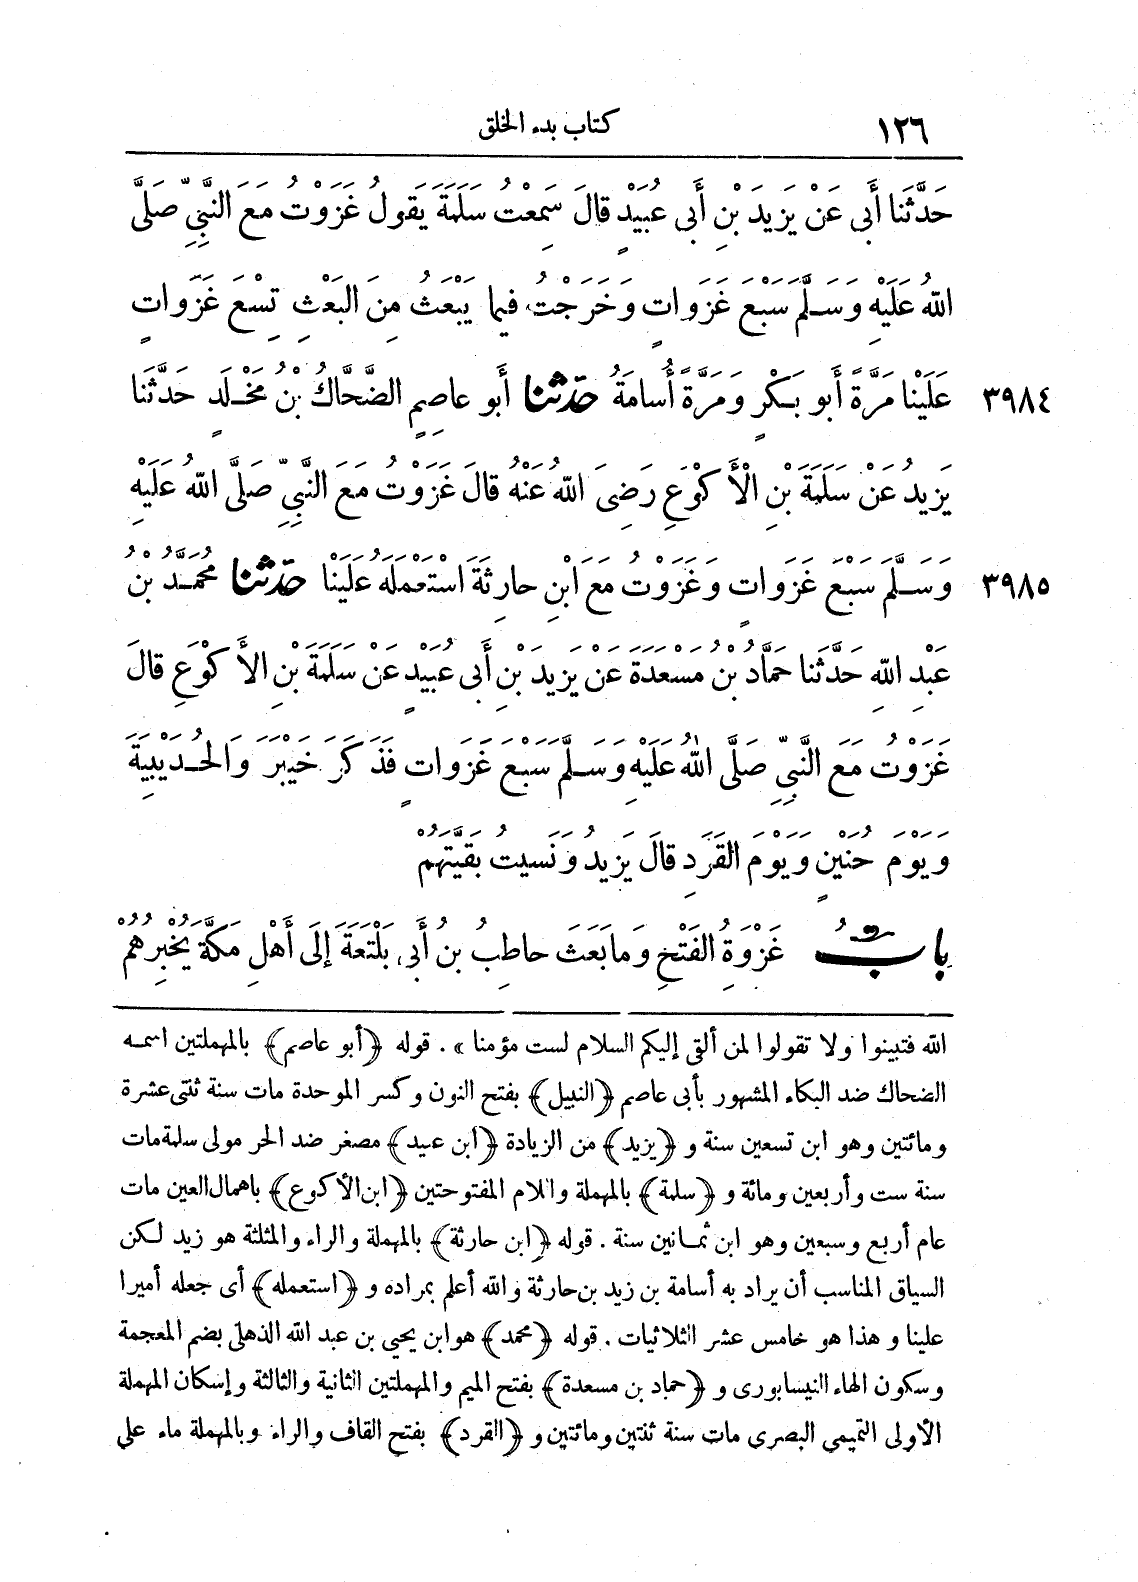 ١٢٦ كتاب بدء الخلق
حَدَّثَنَا أَبِى عَنْ يَزِيدَ بْنِ أَبِى عُبَيْدٍ قَالَ سَمِعْتُ سَلَمَةَ يَقُولُ غَزَوْتُ مَعَ النَّبِىِّ صَلَّى
اللهُ عَلَيْهِ وَسَلَّمَ سَبْعَ غَزَوَاتٍ وَخَرَجْتُ فِيمَا يَبْعَثُ مِنَ البَعْثِ تِسْعَ غَزَوَاتٍ
٣٩٨٤ عَلَيْنَا مَرَّةً أَبُو بَكْرٍ وَمَرَّةً أُسَامَةُ حَدَّثَنَا أَبُو عَاصِمٍ الضَّحَّاكُ بْنُ مَخْلَدٍ حَدَّثَنَا
يَزِيدُ عَنْ سَلَمَةَ بْنِ الْأَكْوَعِ رَضِىَ اللهُ عَنْهُ قَالَ غَزَوْتُ مَعَ النَّبِىِّ صَلَّى اللهُ عَلَيْهِ
٣٩٨٥ وَسَلَّمَ سَبْعَ غَزَوَاتٍ وَغَزَوْتُ مَعَ ابْنِ حَارِثَةَ اسْتَعْمَلَهُ عَلَيْنَا حَدَّثَنَا مُحَمَّدُ بْنُ
عَبْدِ اللهِ حَدَّثَنَا حَمَّادُ بْنُ مَسْعَدَةَ عَنْ يَزِيدَ بْنِ أَبِى عُبَيْدٍ عَنْ سَلَمَةَ بْنِ الأَكْوَعِ قَالَ
غَزَوْتُ مَعَ النَّبِىِّ صَلَّى اللهُ عَلَيْهِ وَسَلَّمَ سَبْعَ غَزَوَاتٍ فَذَكَرَ خَيْبَرَ وَالْحُدَيْبِيَةَ
وَيَوْمَ حُنَيْنٍ وَيَوْمَ القَرَدِ قَالَ يَزِيدُ وَنَسِيتُ بَقِيَّتَهُمْ
بَابُ غَزْوَةِ الْفَتْحِ وَمَا بَعَثَ حَاطِبُ بْنُ أَبِى بَلْتَعَةَ إِلَى أَهْلِ مَكَّةَ يُخْبِرُهُمْ
الله فتبينوا ولا تقولوا لمن ألقى إليكم السلام لست مؤمنا». قوله ﴿أبو عاصم﴾ بالمهملتين اسمه
الضحاك ضد البكاء المشهور بأبى عاصم ﴿النبيل﴾ بفتح النون وكسر الموحدة مات سنة ثنتى عشرة
ومائتين وهو ابن تسعين سنة و﴿يزيد﴾ من الزيادة ﴿ابن عبيد﴾ مصغر ضد الحر مولى سلمة مات
سنة ست وأربعين ومائة و﴿سلمة﴾ بالمهملة واللام المفتوحتين ﴿ابن الأكوع﴾ باهمال العين مات
عام أربع وسبعين وهو ابن ثمانين سنة. قوله ﴿ابن حارثة﴾ بالمهملة والراء والمثلثة هو زيد لكن
السياق المناسب أن يراد به أسامة بن زيد بن حارثة والله أعلم بمراده و﴿استعمله﴾ أى جعله أميرا
علينا وهذا هو خامس عشر الثلاثيات. قوله ﴿محمد﴾ هو ابن يحيى بن عبد الله الذهلى بضم المعجمة
وسكون الهاء النيسابورى و﴿حماد بن مسعدة﴾ بفتح الميم والمهملتين الثانية والثالثة وإسكان المهملة
الأولى التميمى البصرى مات سنة ثنتين ومائتين و﴿القرد﴾ بفتح القاف والراء وبالمهملة ماء على